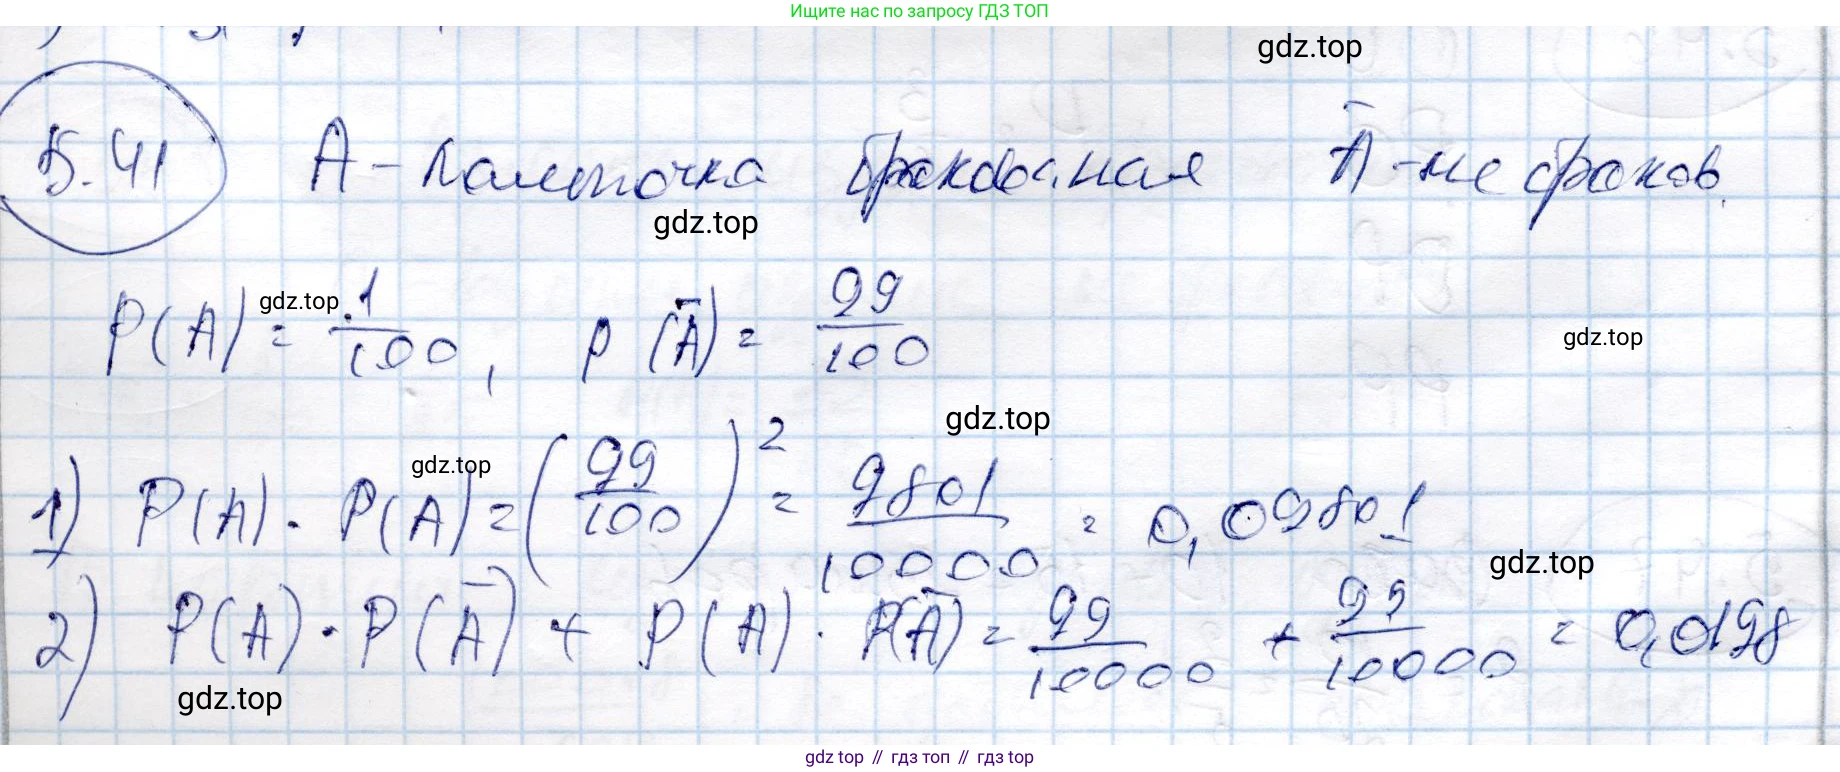 Ищите нас по запросу ГДЗ ТОП
gdz.top
5.41 A - лампочка бракованная Ā - не браков.
gdz.top
P(A) = 1/100, P(Ā) = 99/100
gdz.top
gdz.top
gdz.top
1) P(A) · P(A) = (99/100)² = 9801/10000 = 0,09801
gdz.top
gdz.top
2) P(A) · P(Ā) + P(A) · P(Ā) = 99/10000 + 99/10000 = 0,0198
gdz.top
gdz top // гдз топ // гдз top